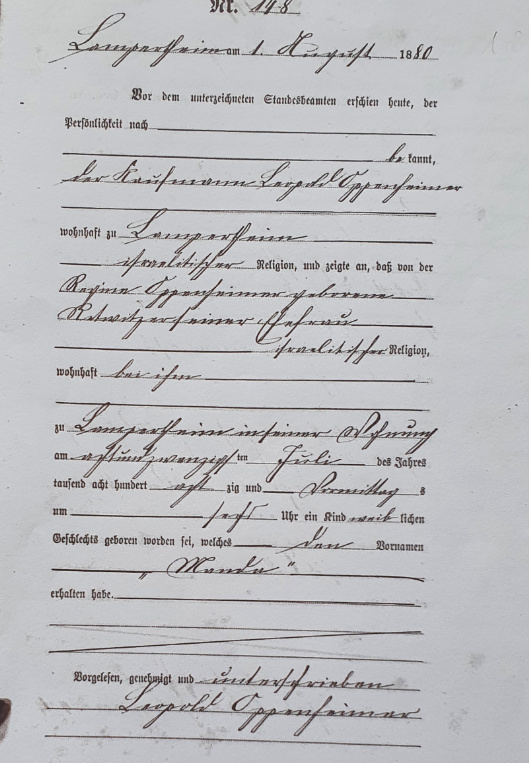 Nr. 148
Lampertheim am 1. August 1880
Vor dem unterzeichneten Standesbeamten erschien heute, der
Persönlichkeit nach
be kannt,
der Kaufmann Leopold Oppenheimer
wohnhaft zu Lampertheim
israelitischer Religion, und zeigte an, daß von der
Regine Oppenheimer geborene
seiner Ehefrau
israelitischer Religion,
wohnhaft bei ihm
zu Lampertheim in seiner Wohnung
am achtundzwanzigsten Juli des Jahres
tausend acht hundert acht zig und Vormittag s
um sechs Uhr ein Kind weib lichen
Geschlechts geboren worden sei, welches den Vornamen
„Manda"
erhalten habe.
Vorgelesen, genehmigt und unterschrieben
Leopold Oppenheimer